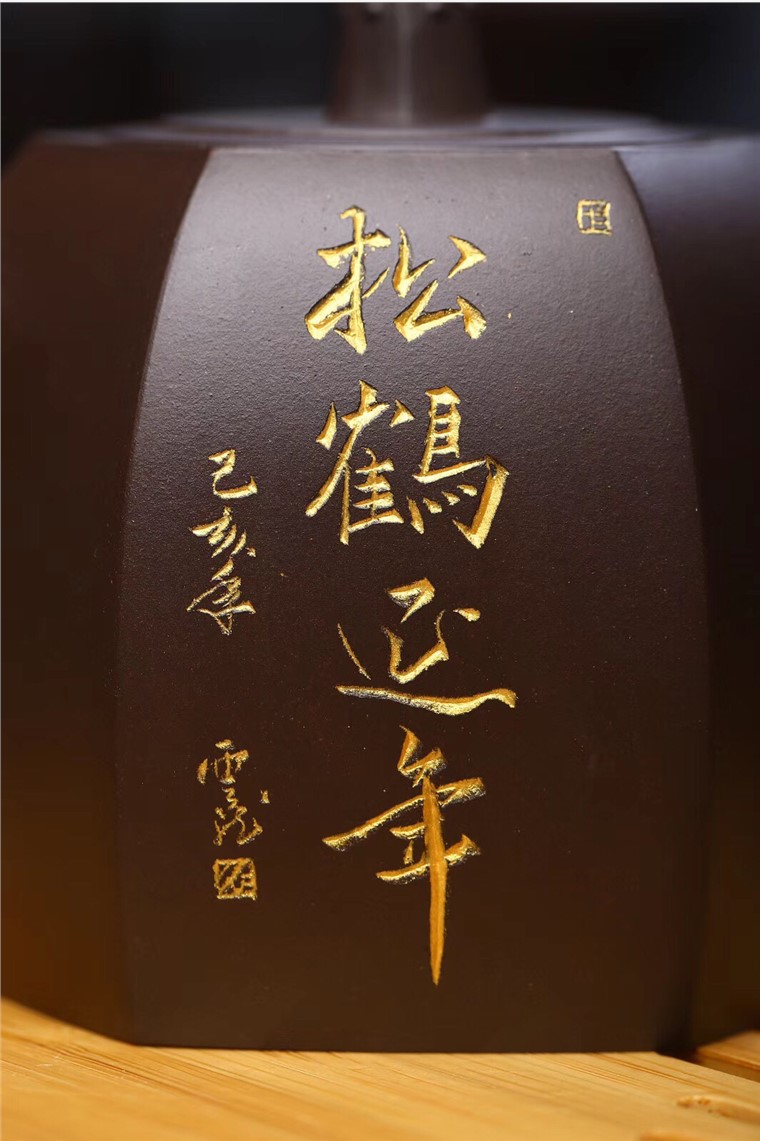 松鶴延年
己亥年